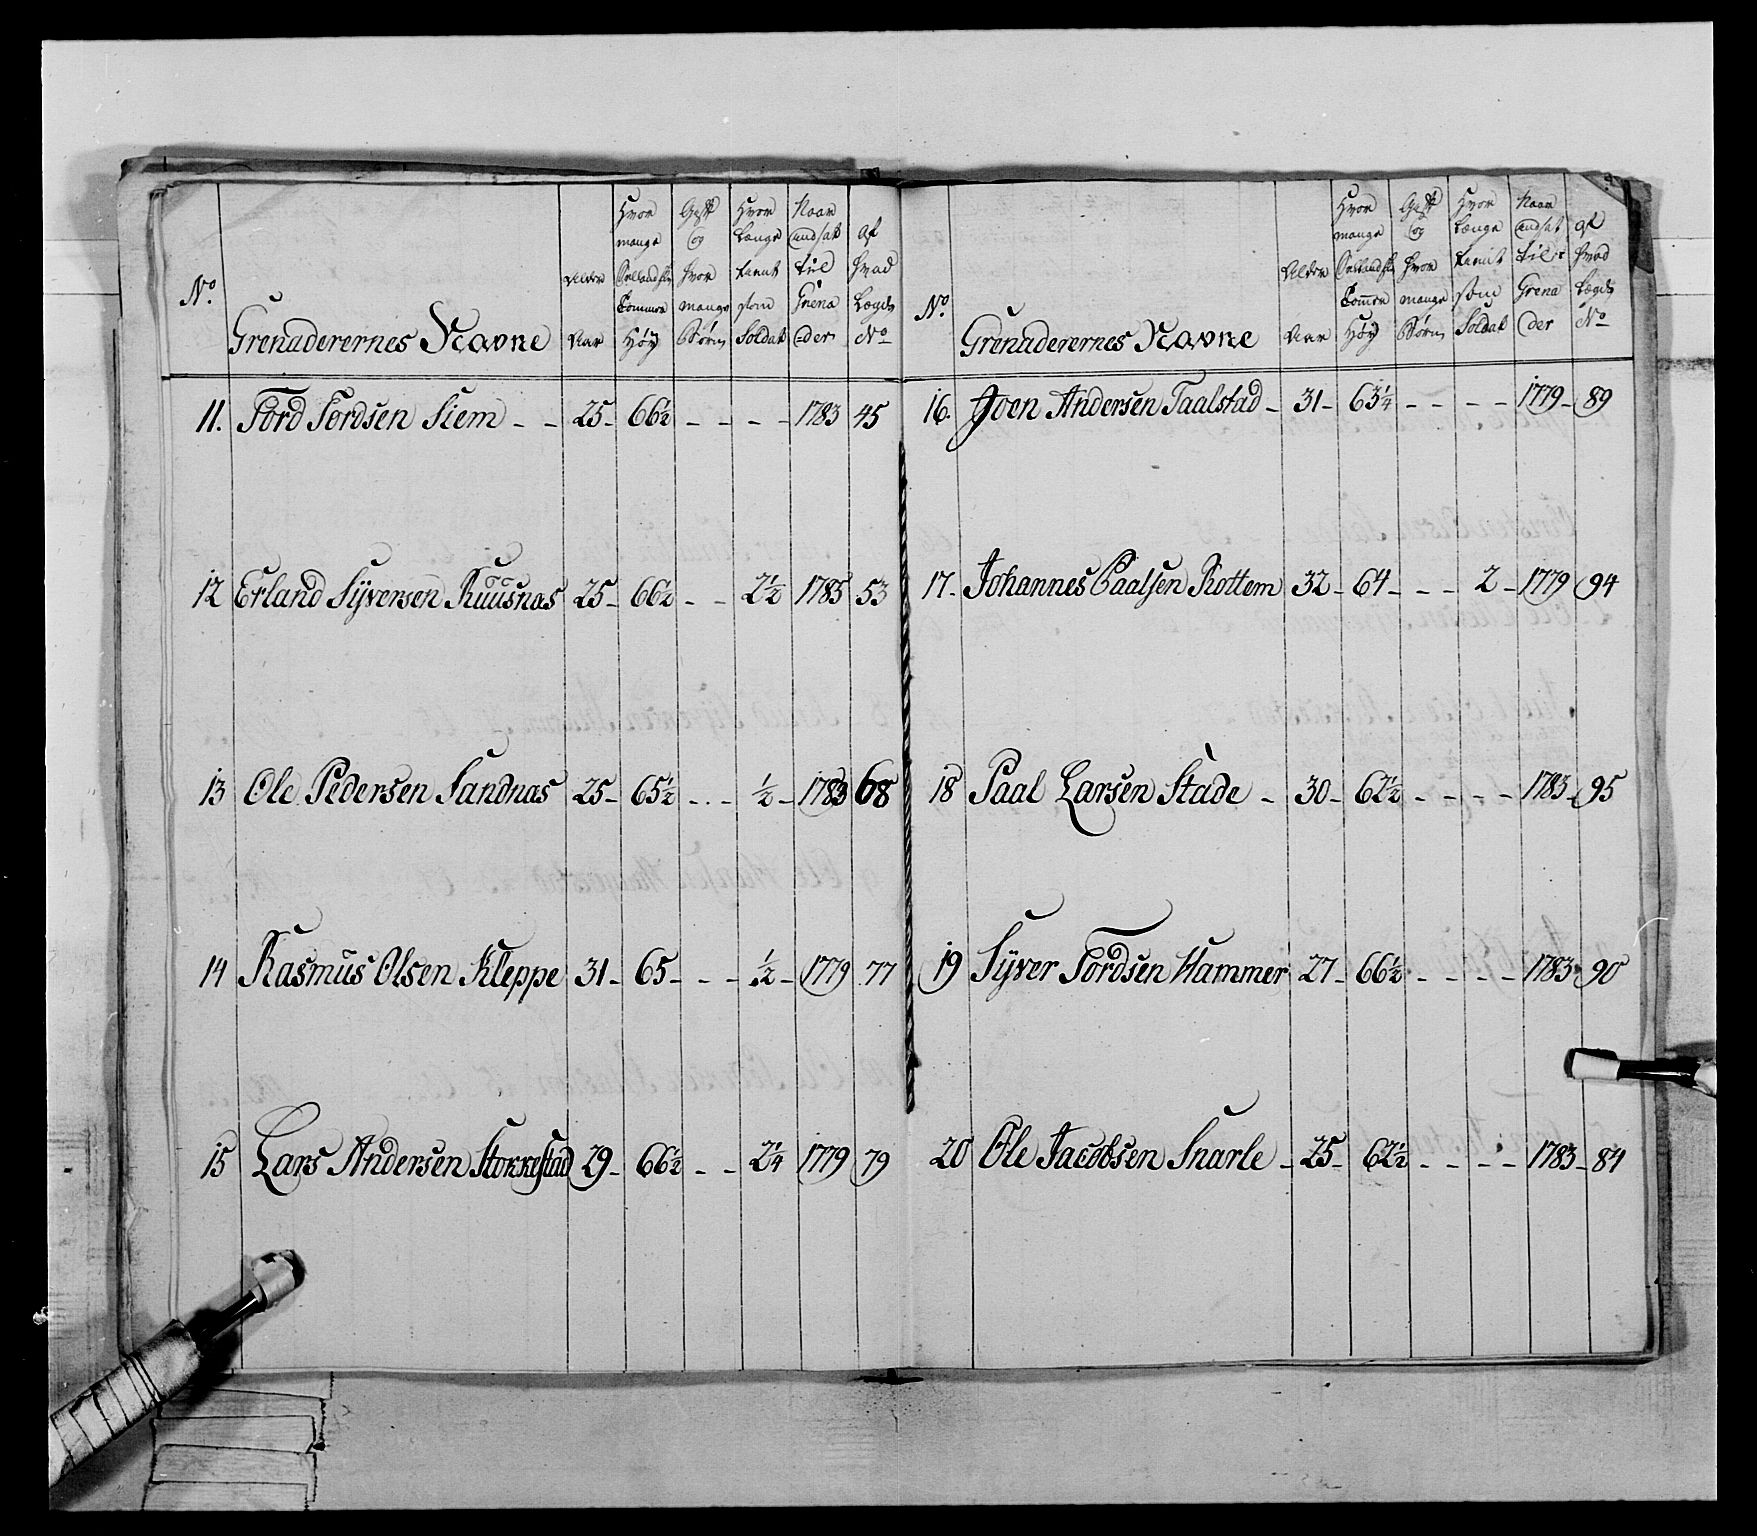 No. Grenaderernes Navne Alder Aar Hvor mange Siellandske Tommer Høy Gift og hvor mange Børn Hvor Længe tient som Soldat Naar andsat til Grenader Af hvad Lægds No
11. Tord Tordsen Siem - - 25- 66½ - - - - 1783 45
12 Erland Syversen Kuusnas 25- 66½ - - 2½ 1785 53
13 Ole Pedersen Sandnas 25- 65½ - - ½- 1783 68
14 Rasmus Olsen Kleppe 31- 65- - - ½- 1779 77
15 Lars Andersen Storrestad 29- 66½ - - 2¼ 1779 79
No. Grenaderernes Navne Alder Aar Hvor mange Siellandske Tommer Høy Gift og hvor mange Børn Hvor Længe tient som Soldat Naar andsat til Grenader Af hvad Lægds No
16. Joen Andersen Taalstad- 31- 63¼ - - - - 1779- 89
17- Johannes Paalsen Rottem 32- 64- - - 2- 1779 94
18 Paal Larsen Stade - 30- 62½ - - - - 1783- 95
19 Syver Tordsen Hammer 27- 66½ - - - - 1783- 90
20 Ole Jacobsen Snarle - 25- 62½ - - - - 1783- 84